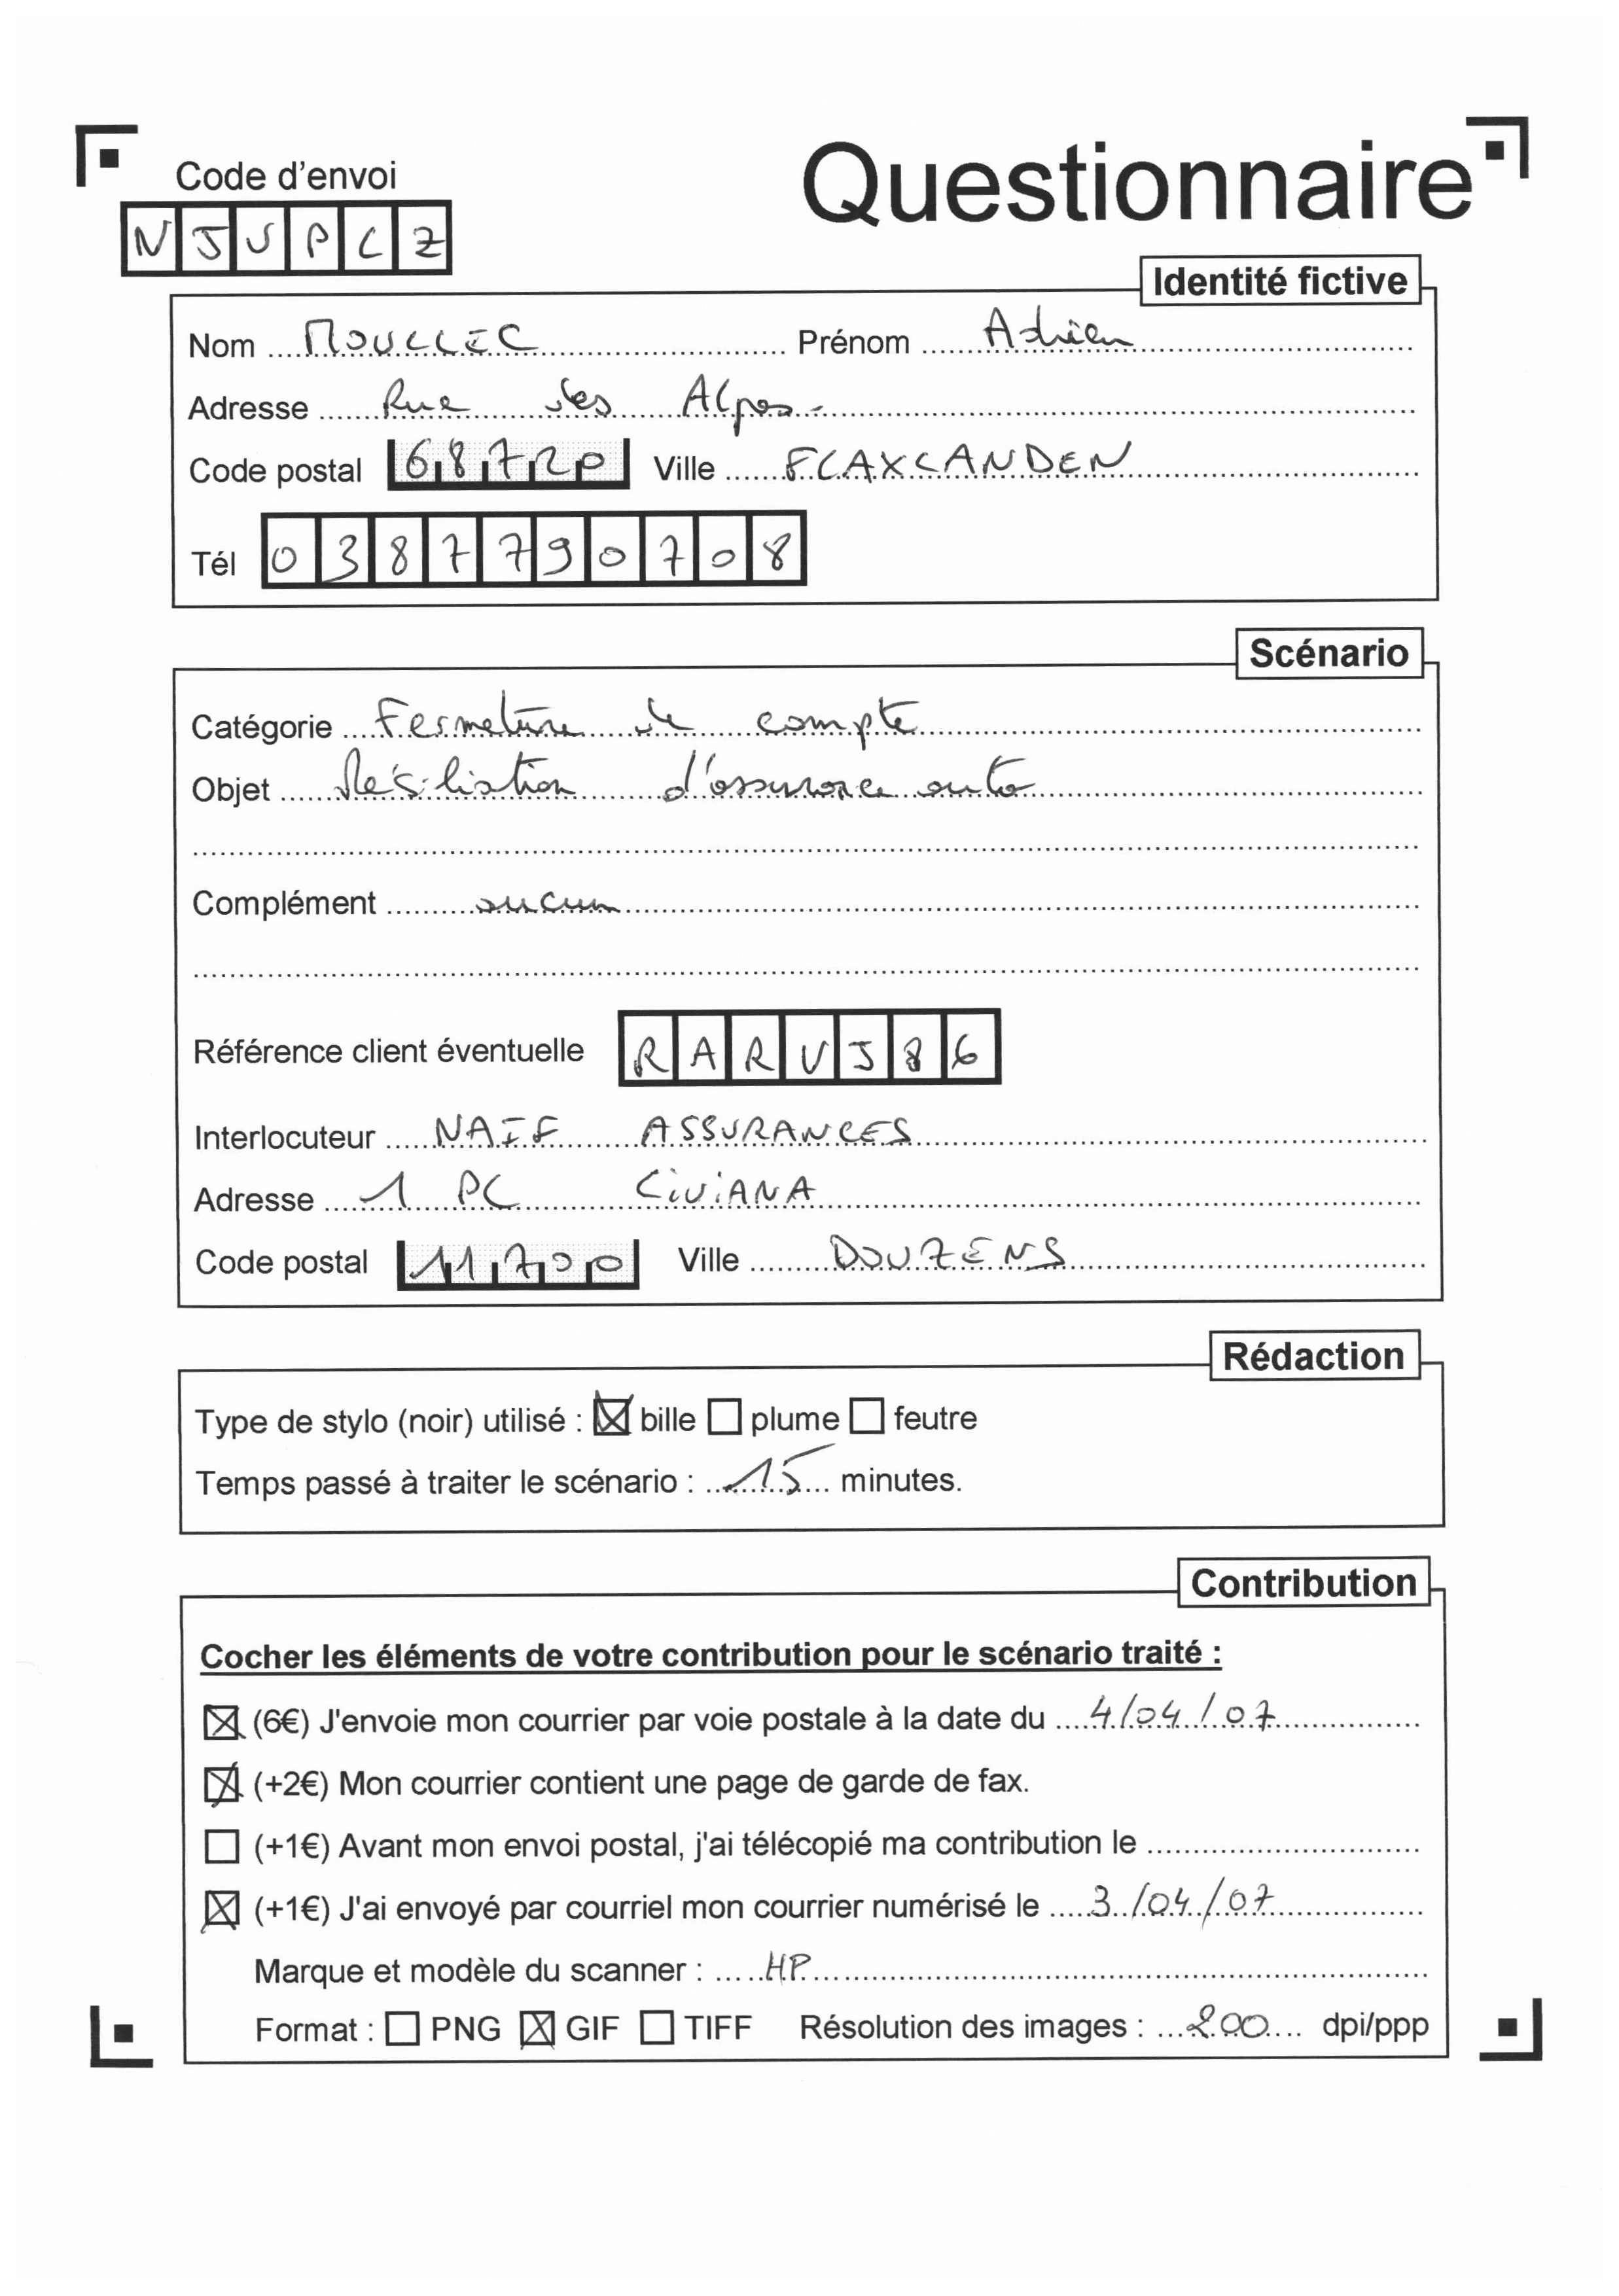 Code d'envoi
Questionnaire
NJUPLZ
Identité fictive
Nom MOULLEC Prénom Adrien
Adresse Rue des Alpes
Code postal 68720 Ville FLAXLANDEN
Tél 0387790708
Scénario
Catégorie Fermeture de compte
Objet Résiliation d'assurance auto
Complément aucun
Référence client éventuelle RARVJ86
Interlocuteur NAIF ASSURANCES
Adresse 1 PL LIVIANA
Code postal 11700 Ville DOUZENS
Rédaction
Type de stylo (noir) utilisé : ☒ bille ☐ plume ☐ feutre
Temps passé à traiter le scénario : 15 minutes.
Contribution
Cocher les éléments de votre contribution pour le scénario traité :
☒ (6€) J'envoie mon courrier par voie postale à la date du 4/04/07
☒ (+2€) Mon courrier contient une page de garde de fax.
☐ (+1€) Avant mon envoi postal, j'ai télécopié ma contribution le
☒ (+1€) J'ai envoyé par courriel mon courrier numérisé le 3/04/07
Marque et modèle du scanner : HP
Format : ☐ PNG ☒ GIF ☐ TIFF Résolution des images : 200 dpi/ppp